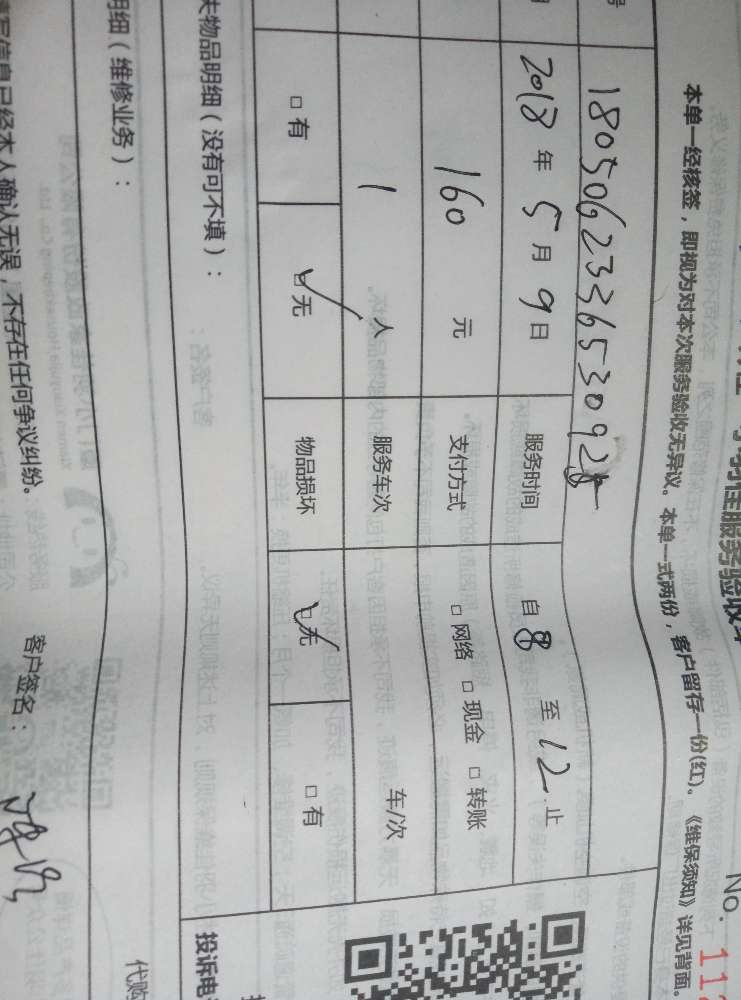 服务验收单
No. 113
本单一经核签，即视为对本次服务验收无异议。本单一式两份，客户留存一份(红)、《维保须知》详见背面。
号 180506233653092
2018 年 5 月 9 日 服务时间 自 8 至 12 止
160 元 支付方式 □ 网络 □ 现金 □ 转账
1 人 服务车次 车/次
□ 有 □ 无 物品损坏 □ 无 □ 有
失物品明细（没有可不填）：
投诉电
明细（维修业务）：
代购
填写信息已经本人确认无误，不存在任何争议纠纷。 客户签名：